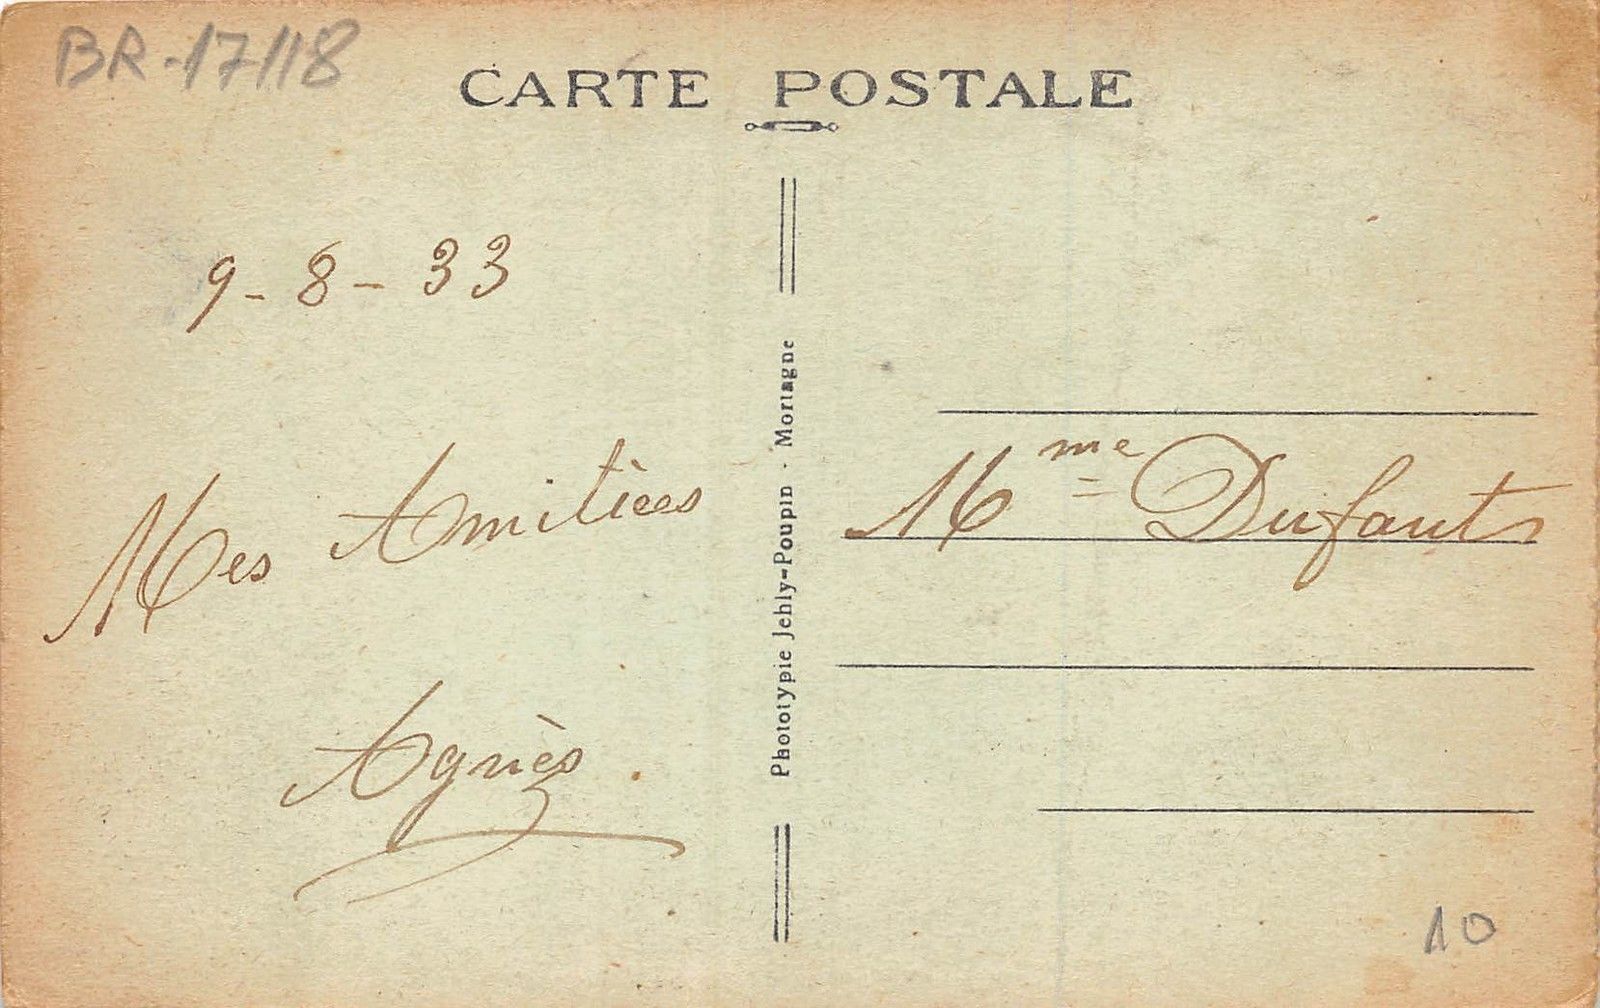 BR-17118
CARTE POSTALE
9-8-33
Mes Amitiées
Agnès.
Phototypie Jehly-Poupin - Mortagne
Mme Dufaut
10